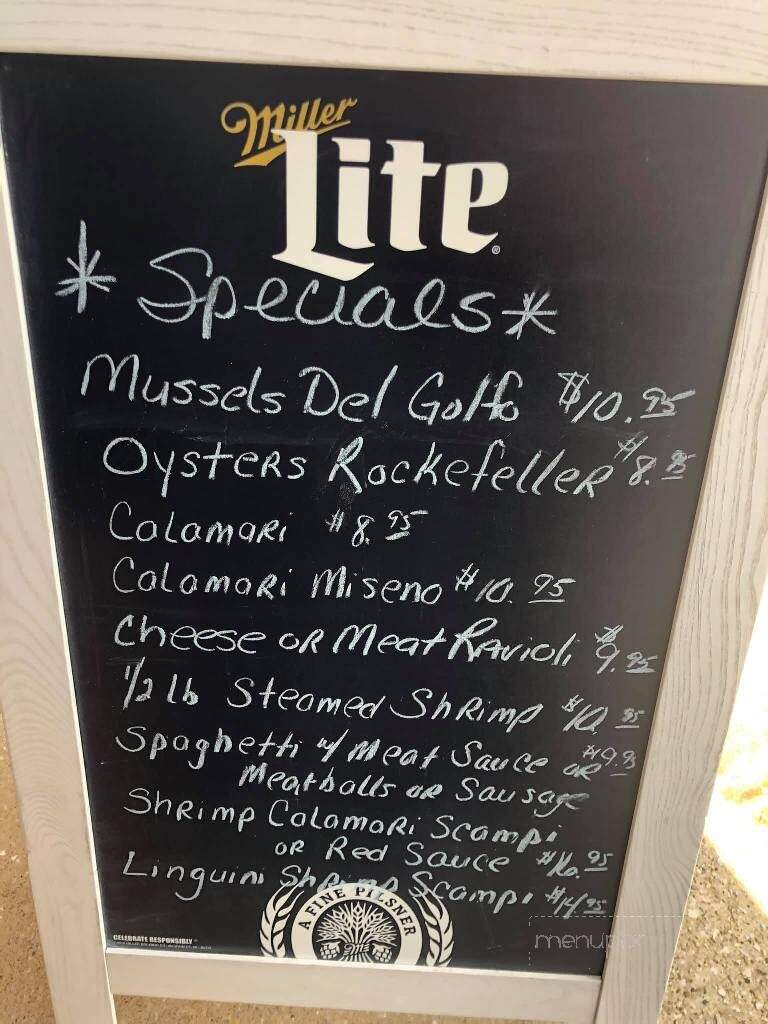 Miller
Lite
* Specials *
Mussels Del Golfo $10.95
Oysters Rockefeller $8.95
Calamari $8.95
Calamari Miseno $10.95
Cheese or Meat Ravioli $9.95
1/2 lb Steamed Shrimp $10.95
Spaghetti w/ Meat Sauce or $9.95
Meatballs or Sausage
Shrimp Calamari Scampi
or Red Sauce $16.95
Linguini Shrimp Scampi $14.95
A FINE PILSNER
CELEBRATE RESPONSIBLY